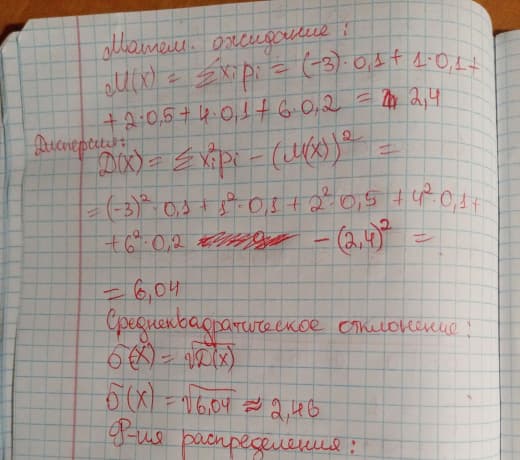 Матем. ожидание:
M(X) = ∑xᵢpᵢ = (-3)·0,1 + 1·0,1 +
+ 2·0,5 + 4·0,1 + 6·0,2 = 2,4
Дисперсия:
D(X) = ∑xᵢ²pᵢ - (M(X))² =
= (-3)²·0,1 + 1²·0,1 + 2²·0,5 + 4²·0,1 +
+ 6²·0,2 - (2,4)² =
= 6,04
Среднеквадратическое отклонение:
σ(X) = √D(X)
σ(X) = √6,04 ≈ 2,46
Ф-ия распределения: